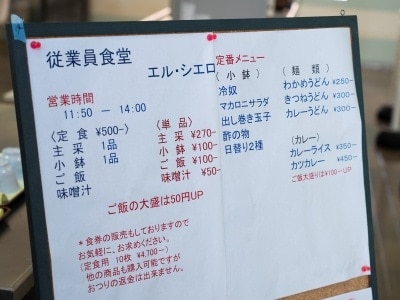 従業員食堂
エル・シエロ
営業時間
11:50 ー 14:00
〈定食 ¥500-〉
主采 1品
小鉢 1品
ご飯
味噌汁
〈単品〉
主采 ¥270-
小鉢 ¥100-
ご飯 ¥100-
味噌汁 ¥50-
ご飯の大盛は50円UP
*食券の販売もしておりますので
お気軽に、お求めください。
(定食用 10枚 ¥4,700ー)
他の商品も購入可能ですが
おつりの返金は出来ません。
定番メニュー
(小鉢)
冷奴
マカロニサラダ
出し巻き玉子
酢の物
日替り2種
(麺類)
わかめうどん ¥250-
きつねうどん ¥300-
カレーうどん ¥300-
(カレー)
カレーライス ¥350-
カツカレー ¥450-
ご飯大盛りは¥100-UP